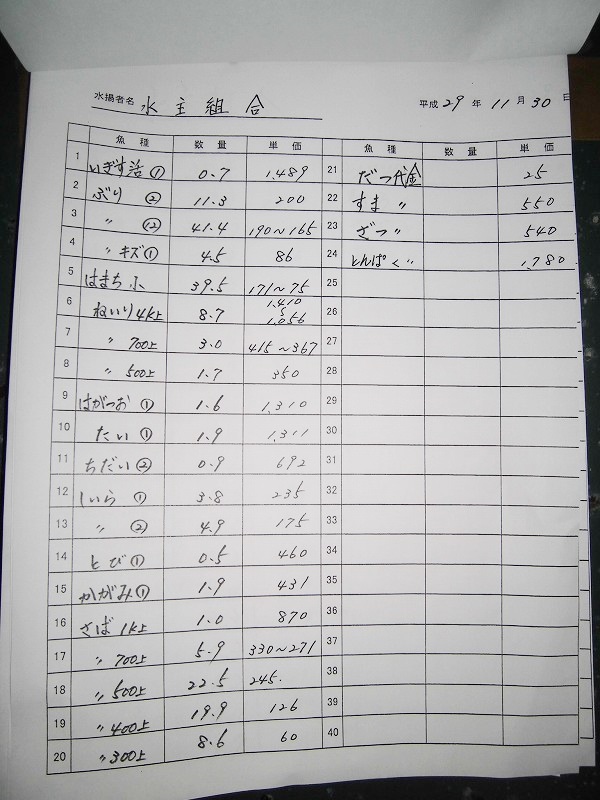 水揚者名 水主組合
平成 29 年 11 月 30 日
魚種 数量 単価
1 いぎす活① 0.7 1,489
2 ぶり ② 11.3 200
3 〃 ⑫ 41.4 190～165
4 〃 キズ① 4.5 86
5 はまち小 39.5 171～75
6 ねいり4K上 8.7 1,410～1,056
7 〃 700上 3.0 415～367
8 〃 500上 1.7 350
9 はがつお ① 1.6 1,310
10 たい ① 1.9 1,311
11 ちだい② 0.9 692
12 しいら ① 3.8 235
13 〃 ② 4.9 175
14 とび① 0.5 460
15 かがみ① 1.9 431
16 さば 1K上 1.0 870
17 〃 700上 5.9 330～271
18 〃 500上 22.5 245.
19 〃 400上 19.9 126
20 〃 300上 8.6 60
魚種 数量 単価
21 だつ代金 25
22 すま 〃 550
23 ざつ 〃 540
24 とんぱく 〃 1,780
25
26
27
28
29
30
31
32
33
34
35
36
37
38
39
40